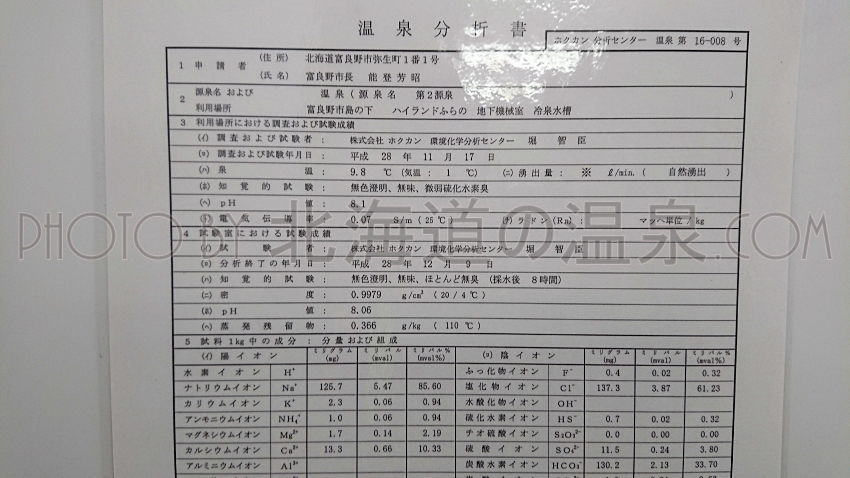 温泉分析書
ホクカン 分析センター 温泉 第 16-008 号
1 申請者 (住所) 北海道富良野市弥生町1番1号
(氏名) 富良野市長 能登芳昭
2 源泉名 および 温泉(源泉名 第2源泉 )
利用場所 富良野市島の下 ハイランドふらの 地下機械室 冷泉水槽
3 利用場所における調査および試験成績
(イ) 調査および試験者: 株式会社 ホクカン 環境化学分析センター 堀 智臣
(ロ) 調査および試験年月日: 平成 28 年 11 月 17 日
(ハ) 泉温: 9.8 ℃ (気温: 1 ℃) (ニ) 湧出量: ※ ℓ/min. ( 自然湧出 )
(ホ) 知覚的試験: 無色澄明、無味、微弱硫化水素臭
(ヘ) pH値: 8.1
(ト) 電気伝導率: 0.07 S/m (25℃) (チ) ラドン(Rn): マッヘ単位/kg
4 試験室における試験成績
(イ) 試験者: 株式会社 ホクカン 環境化学分析センター 堀 智臣
(ロ) 分析終了の年月日: 平成 28 年 12 月 9 日
(ハ) 知覚的試験: 無色澄明、無味、ほとんど無臭 (採水後 8時間)
(ニ) 密度: 0.9979 g/cm³ (20/4℃)
(ホ) pH値: 8.06
(ヘ) 蒸発残留物: 0.366 g/kg ( 110 ℃)
5 試料1kg中の成分: 分量および組成
(イ) 陽イオン ミリグラム(mg) ミリバル(mval) ミリバル%(mval%) (ロ) 陰イオン ミリグラム(mg) ミリバル(mval) ミリバル%(mval%)
水素イオン H⁺ ふっ化物イオン F⁻ 0.4 0.02 0.32
ナトリウムイオン Na⁺ 125.7 5.47 85.60 塩化物イオン Cl⁻ 137.3 3.87 61.23
カリウムイオン K⁺ 2.3 0.06 0.94 水酸化物イオン OH⁻
アンモニウムイオン NH₄⁺ 1.0 0.06 0.94 硫化水素イオン HS⁻ 0.7 0.02 0.32
マグネシウムイオン Mg²⁺ 1.7 0.14 2.19 チオ硫酸イオン S₂O₃²⁻ 0.0 0.00 0.00
カルシウムイオン Ca²⁺ 13.3 0.66 10.33 硫酸イオン SO₄²⁻ 11.5 0.24 3.80
アルミニウムイオン Al³⁺ 炭酸水素イオン HCO₃⁻ 130.2 2.13 33.70
PHOTO BY 北海道の温泉.COM